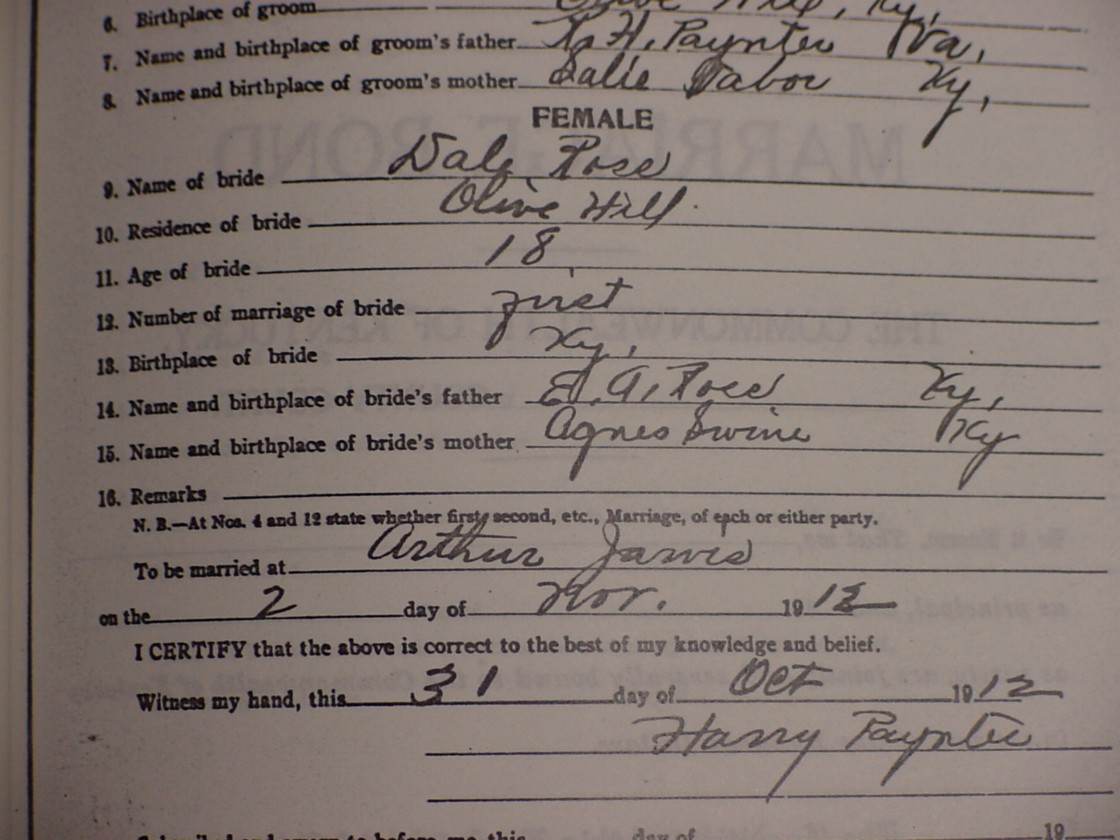 6. Birthplace of groom Olive Hill, Ky,
7. Name and birthplace of groom's father R. H. Paynter Va,
8. Name and birthplace of groom's mother Salie Tabor Ky,
FEMALE
9. Name of bride Dale Rose
10. Residence of bride Olive Hill
11. Age of bride 18
12. Number of marriage of bride first
13. Birthplace of bride Ky,
14. Name and birthplace of bride's father E. A. Rose Ky,
15. Name and birthplace of bride's mother Agnes Ky
16. Remarks
N. B.—At Nos. 4 and 12 state whether first, second, etc., Marriage, of each or either party.
To be married at Arthur Jarvis
on the 2 day of Nov. 1912
I CERTIFY that the above is correct to the best of my knowledge and belief.
Witness my hand, this 31 day of Oct 1912
Harry Paynter
Subscribed and sworn to before me this day of 19